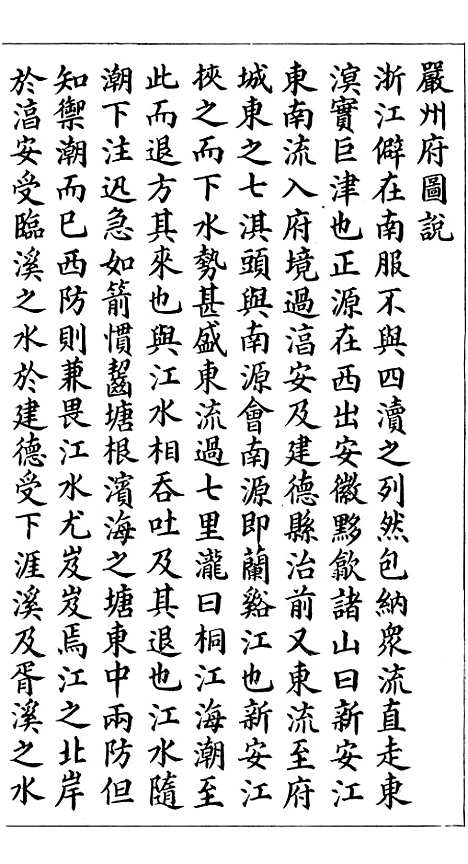 嚴州府圖說
浙江僻在南服不與四瀆之列然包納衆流直走東
溟寶巨津也正源在西出安徽黟歙諸山曰新安江
東南流入府境過湻安及建德縣治前又東流至府
城東之七淇頭與南源會南源即蘭谿江也新安江
挾之而下水勢甚盛東流過七里瀧曰桐江海潮至
此而退方其來也與江水相吞吐及其退也江水隨
潮下注迅急如箭慣齧塘根濱海之塘東中兩防但
知禦潮而已西防則兼畏江水尤岌岌焉江之北岸
於湻安受臨溪之水於建德受下涯溪及胥溪之水